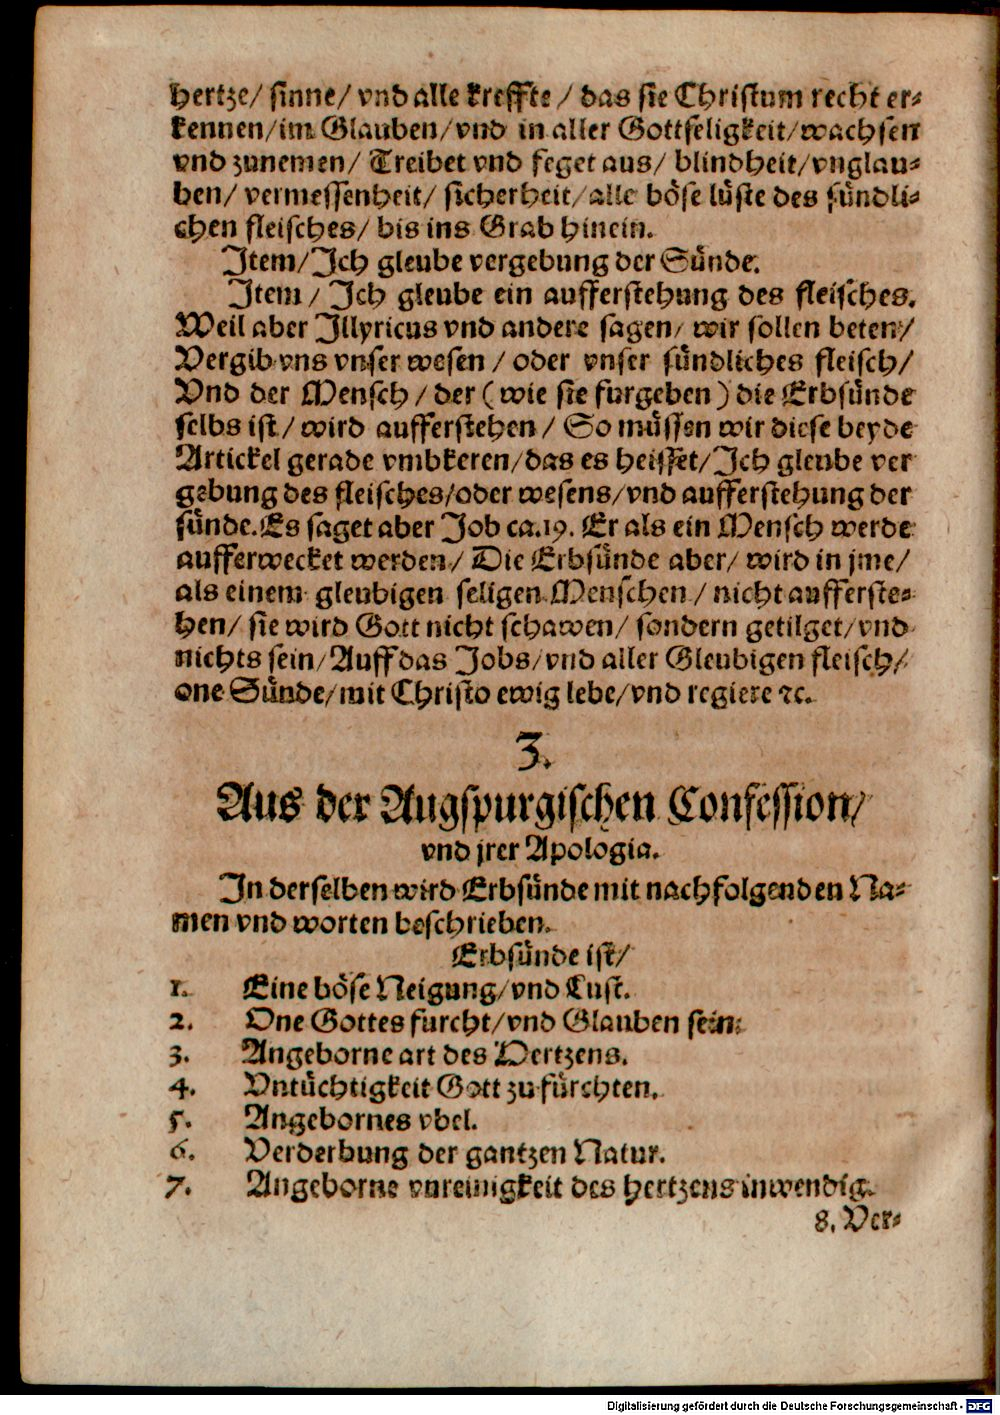 hertze/ sinne/ vnd alle kreffte / das sie Christum recht er-
kennen/im Glauben/vnd in aller Gottseligkeit/wachsen
vnd zunemen/ Treibet vnd feget aus/ blindheit/vnglau-
ben/ vermessenheit/ sicherheit/alle böse lüste des sündli-
chen fleisches/ bis ins Grab hinein.
Item/Ich gleube vergebung der Sünde.
Item / Ich gleube ein aufferstehung des fleisches.
Weil aber Illyricus vnd andere sagen/ wir sollen beten/
Vergib vns vnser wesen / oder vnser sündliches fleisch/
Vnd der Mensch / der (wie sie furgeben) die Erbsünde
selbs ist/ wird aufferstehen / So müssen wir diese beyde
Artickel gerade vmbkeren/das es heisset/Ich gleube ver
gebung des fleisches/oder wesens/vnd aufferstehung der
sünde.Es saget aber Job ca.19. Er als ein Mensch werde
aufferwecket werden/ Die Erbsünde aber/ wird in jme/
als einem gleubigen seligen Menschen / nicht aufferste-
hen/ sie wird Gott nicht schawen/ sondern getilget/vnd
nichts sein/Auff das Jobs/vnd aller Gleubigen fleisch/
one Sünde/mit Christo ewig lebe/vnd regiere ꝛc.
3.
Aus der Augspurgischen Confession/
vnd jrer Apologia.
In derselben wird Erbsünde mit nachfolgenden Na-
men vnd worten beschrieben.
Erbsünde ist/
1. Eine böse Neigung/vnd Lust.
2. One Gottes furcht/vnd Glauben sein.
3. Angeborne art des Hertzens.
4. Vntüchtigkeit Gott zu fürchten.
5. Angebornes vbel.
6. Verderbung der gantzen Natur.
7. Angeborne vnreinigkeit des hertzens inwendig.
8. Ver-
Digitalisierung gefördert durch die Deutsche Forschungsgemeinschaft - DFG